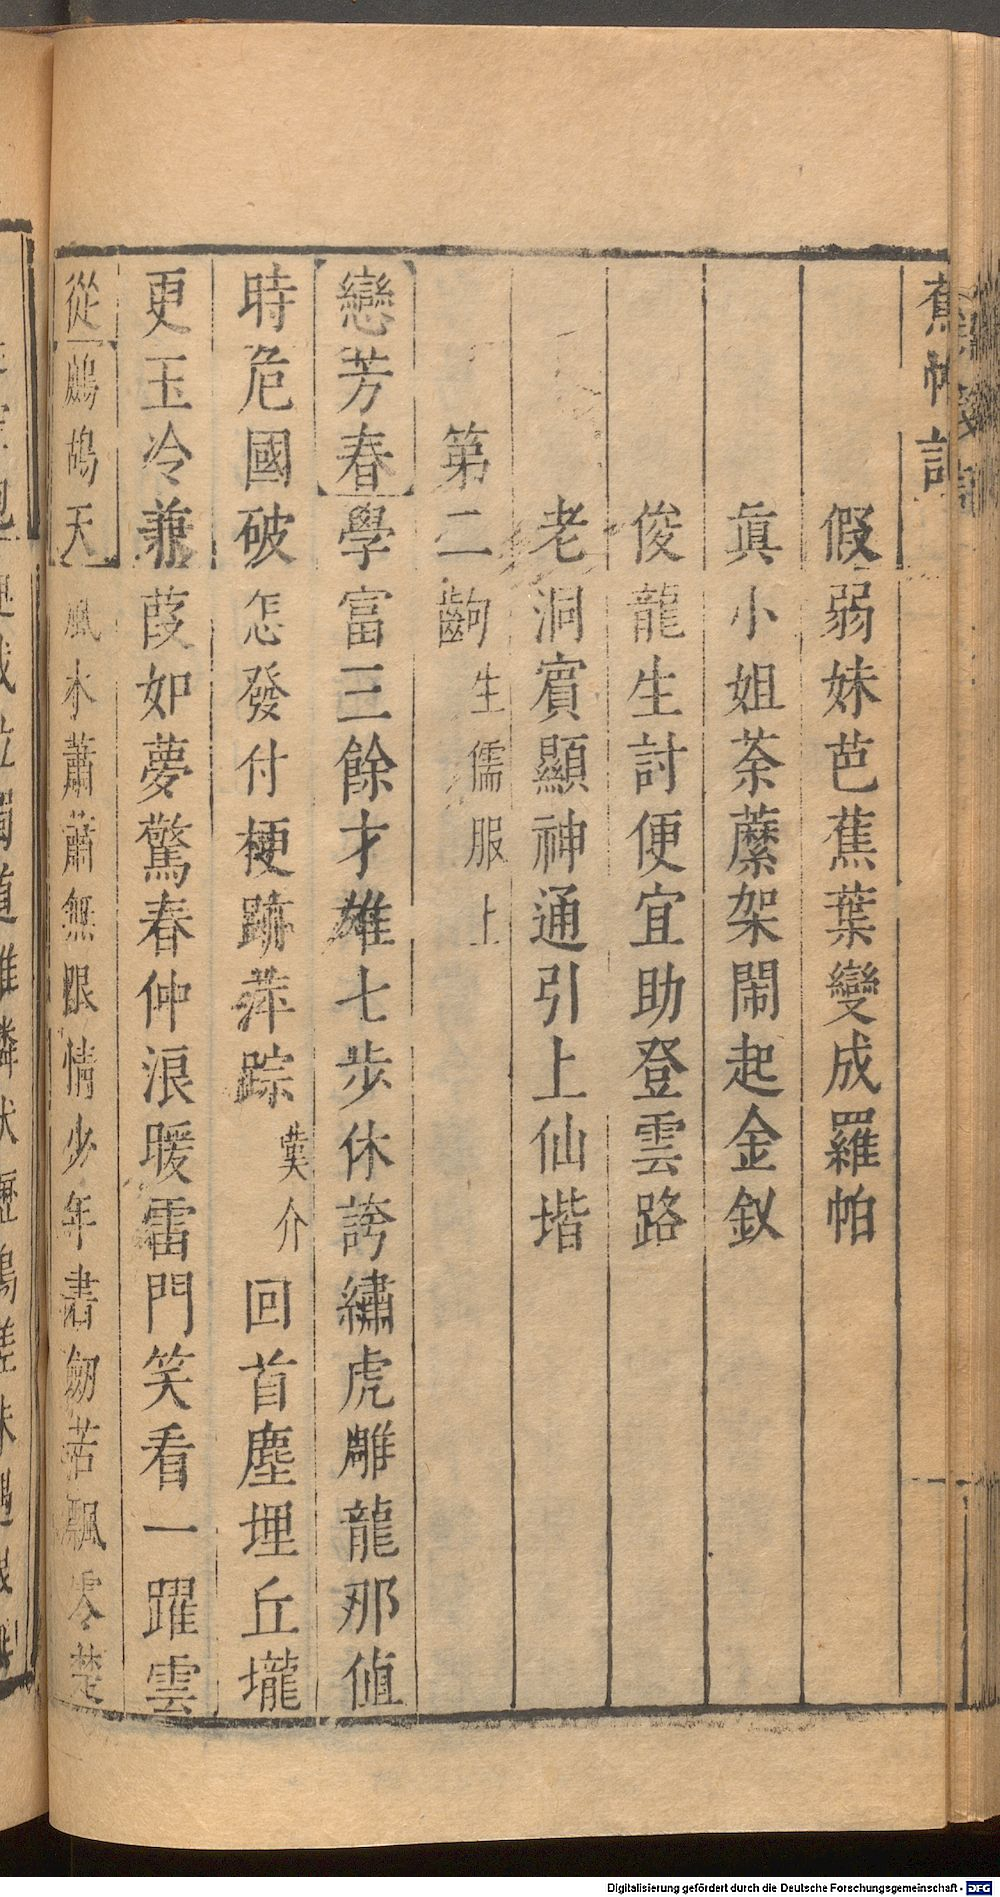 蕉帕記
假弱妹芭蕉葉變成羅帕
眞小姐荼蘼架鬧起金釵
俊龍生討便宜助登雲路
老洞賓顯神通引上仙堦
第二齣 生儒服上
戀芳春 學富三餘才雄七步休誇繡虎雕龍那値
時危國破怎發付梗跡萍踪 嘆介 回首塵埋丘壠
更玉冷蒹葭如夢驚春仲浪暖雷門笑看一躍雲
從 鷓鴣天 風木蕭蕭無限情少年書劒苦飄零楚
Digitalisierung gefördert durch die Deutsche Forschungsgemeinschaft - DFG